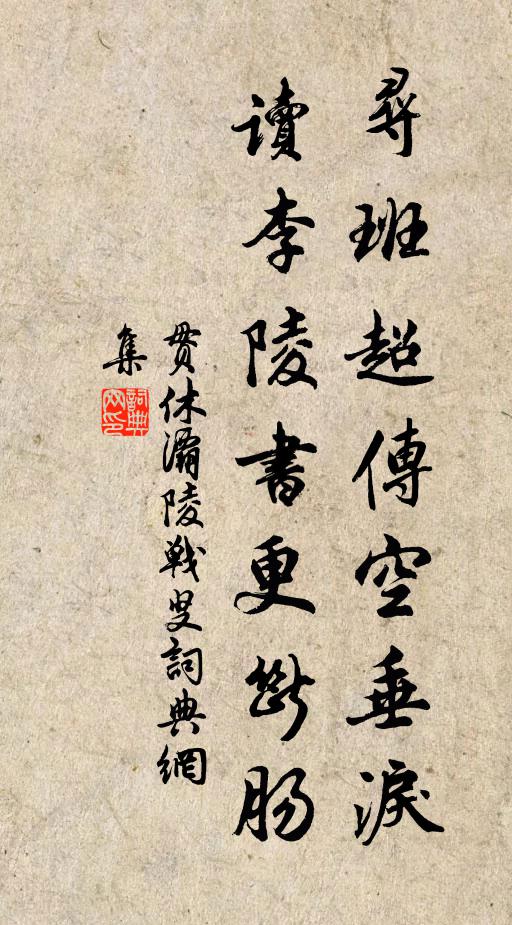 尋班超傳空垂淚
讀李陵書更斷腸
貫休灞陵戰叟詞典網
集
詞典
网印